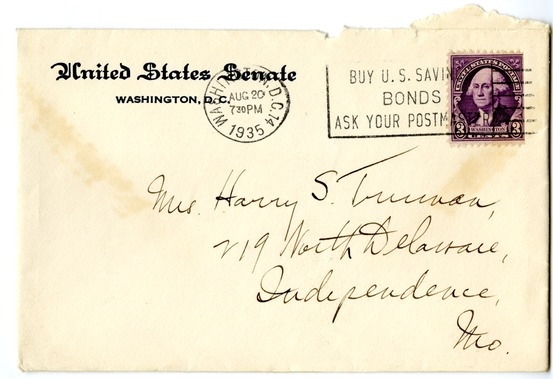 United States Senate
WASHINGTON, D.C.
WASHINGTON, D.C. 14
AUG 20
730PM
1935
BUY U.S. SAVINGS
BONDS
ASK YOUR POSTMASTER
UNITED STATES POSTAGE
WASHINGTON
3 3
Mrs. Harry S. Truman,
219 North Delaware,
Independence,
Mo.